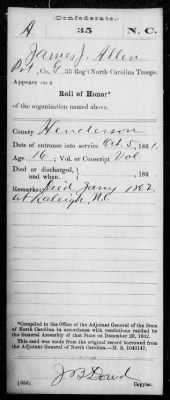 Confederate.
A 35 N.C.
James J. Allen
Pvt, Co. G, 35 Reg't North Carolina Troops.
Appears on a
Roll of Honor*
of the organization named above.
County Henderson
Date of entrance into service Oct 5, 1861.
Age 16; Vol. or Conscript Vol
Died or discharged, and when. , 186
Remarks: Died Jany 1862
at Raleigh, N.C.
*Compiled in the Office of the Adjutant General of the State
of North Carolina in accordance with resolutions ratified by
the General Assembly of that State on December 20, 1862.
This card was made from the original record borrowed from
the Adjutant General of North Carolina.—M. S. 1040147.
(556) J B Dowd
Copyist.